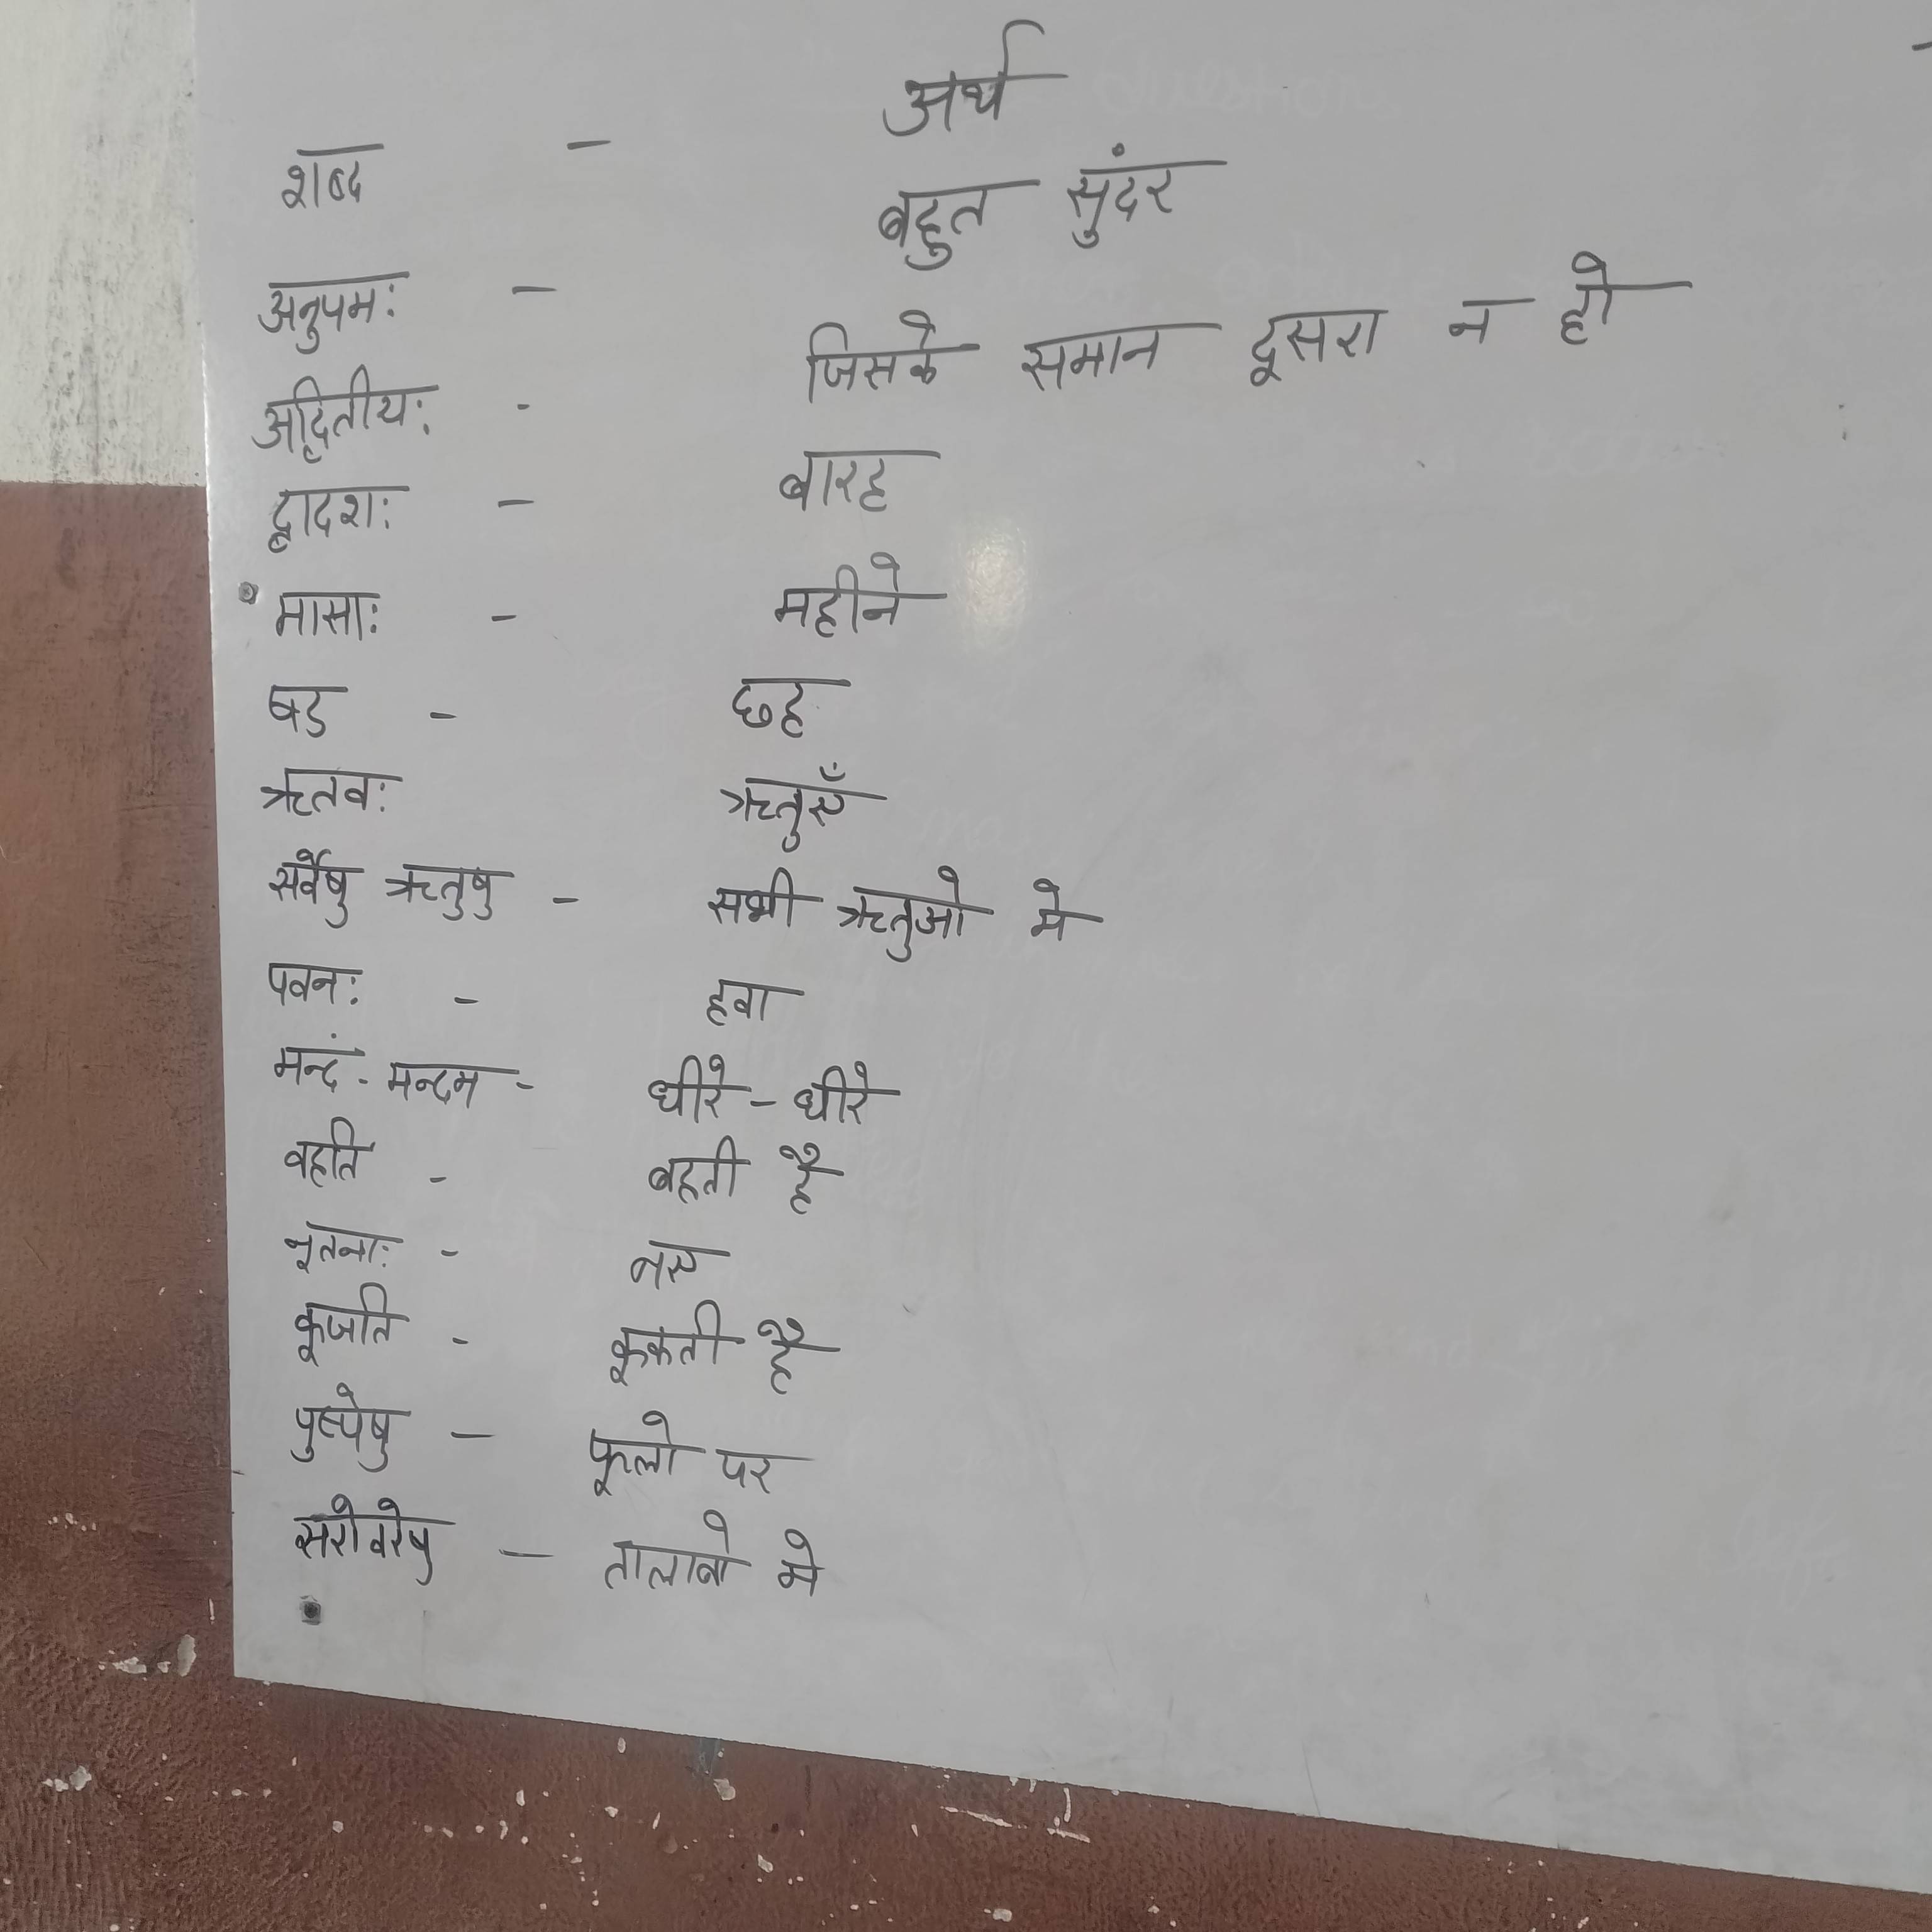 शब्द - अर्थ
अनुपमः - बहुत सुंदर
अद्वितीयः - जिसके समान दूसरा न हो
द्वादशः - बारह
मासाः - महीने
षड - छह
ऋतवः ऋतुएँ
सर्वेषु ऋतुषु - सभी ऋतुओ मे
पवनः - हवा
मन्दं - मन्दम - धीरे - धीरे
वहति - बहती है
नूतनाः - नए
कूजति - कूकती है
पुष्पेषु - फूलो पर
सरोवरेषु - तालाबो मे